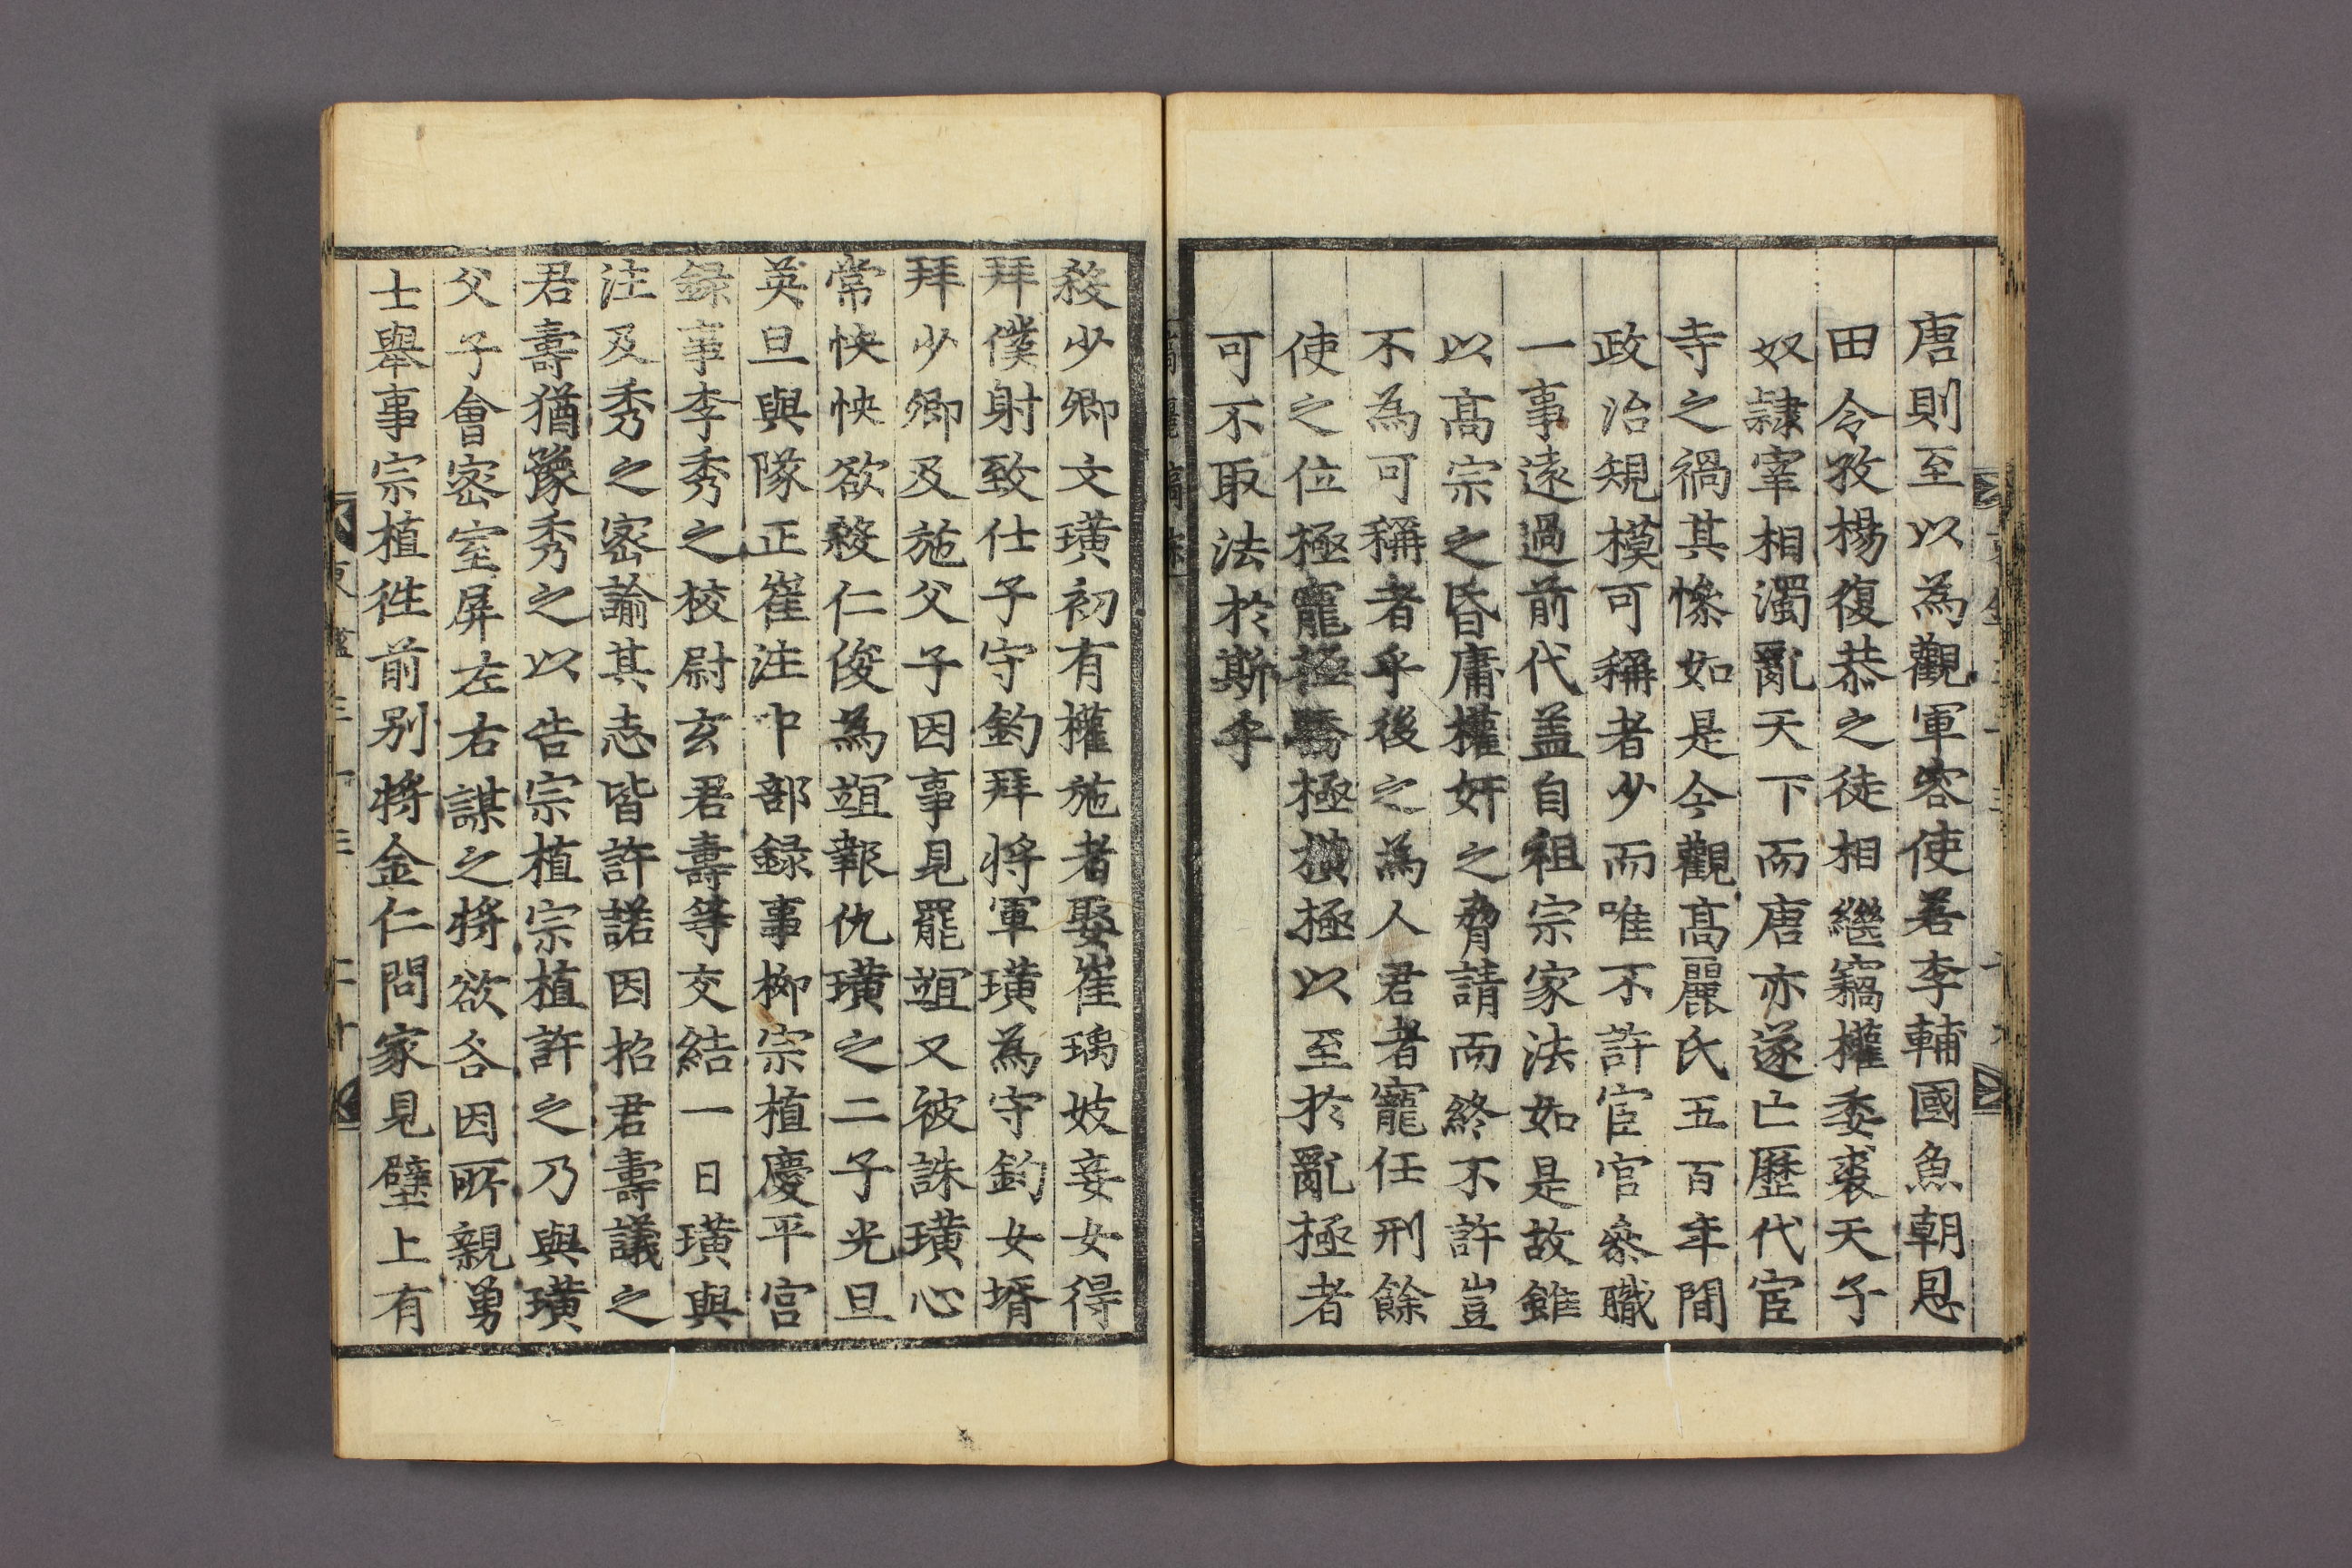 唐則至以為觀軍容使若李輔國魚朝恩
田令孜楊復恭之徒相繼竊權委裘天子
奴隷宰相濁亂天下而唐亦遂亡歷代宦
寺之禍其慘如是今觀高麗氏五百年間
政治䂓模可稱者少而唯不許宦官叅職
一事遠過前代盖自祖宗家法如是故雖
以高宗之昏庸權奸之脅請而終不許豈
不為可稱者乎後之為人君者寵任刑餘
使之位極寵極驕極橫極以至於亂極者
可不取法於斯乎
殺少卿文璜初有權施者娶崔瑀妓妾女得
拜僕射致仕子守鈞拜將軍璜為守鈞女壻
拜少卿及施父子因事見罷竩又被誅璜心
常怏怏欲殺仁俊為竩報仇璜之二子光旦
英旦與隊正崔注中部録事柳宗植慶平宮
録事李秀之校尉玄君壽等交結一日璜與
注及秀之密諭其志皆許諾因招君壽議之
君壽猶豫秀之以告宗植宗植許之乃與璜
父子會密室屏左右謀之將欲合因所親勇
士舉事宗植徃前别將金仁問家見壁上有